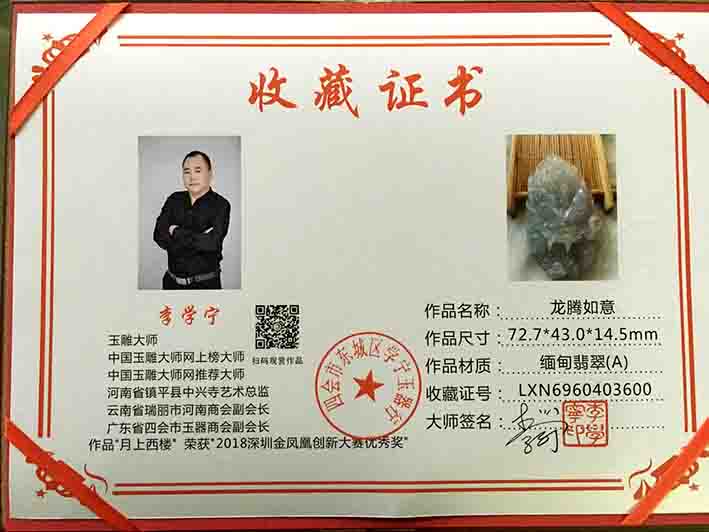 收藏证书
李学宁
玉雕大师
中国玉雕大师网上榜大师
中国玉雕大师网推荐大师
河南省镇平县中兴寺艺术总监
云南省瑞丽市河南商会副会长
广东省四会市玉器商会副会长
作品"月上西楼" 荣获"2018深圳金凤凰创新大赛优秀奖"
扫码观赏作品
四会市东城区学宁玉器行
作品名称: 龙腾如意
作品尺寸: 72.7*43.0*14.5mm
作品材质: 缅甸翡翠(A)
收藏证号: LXN6960403600
大师签名: 李学宁
李学宁印